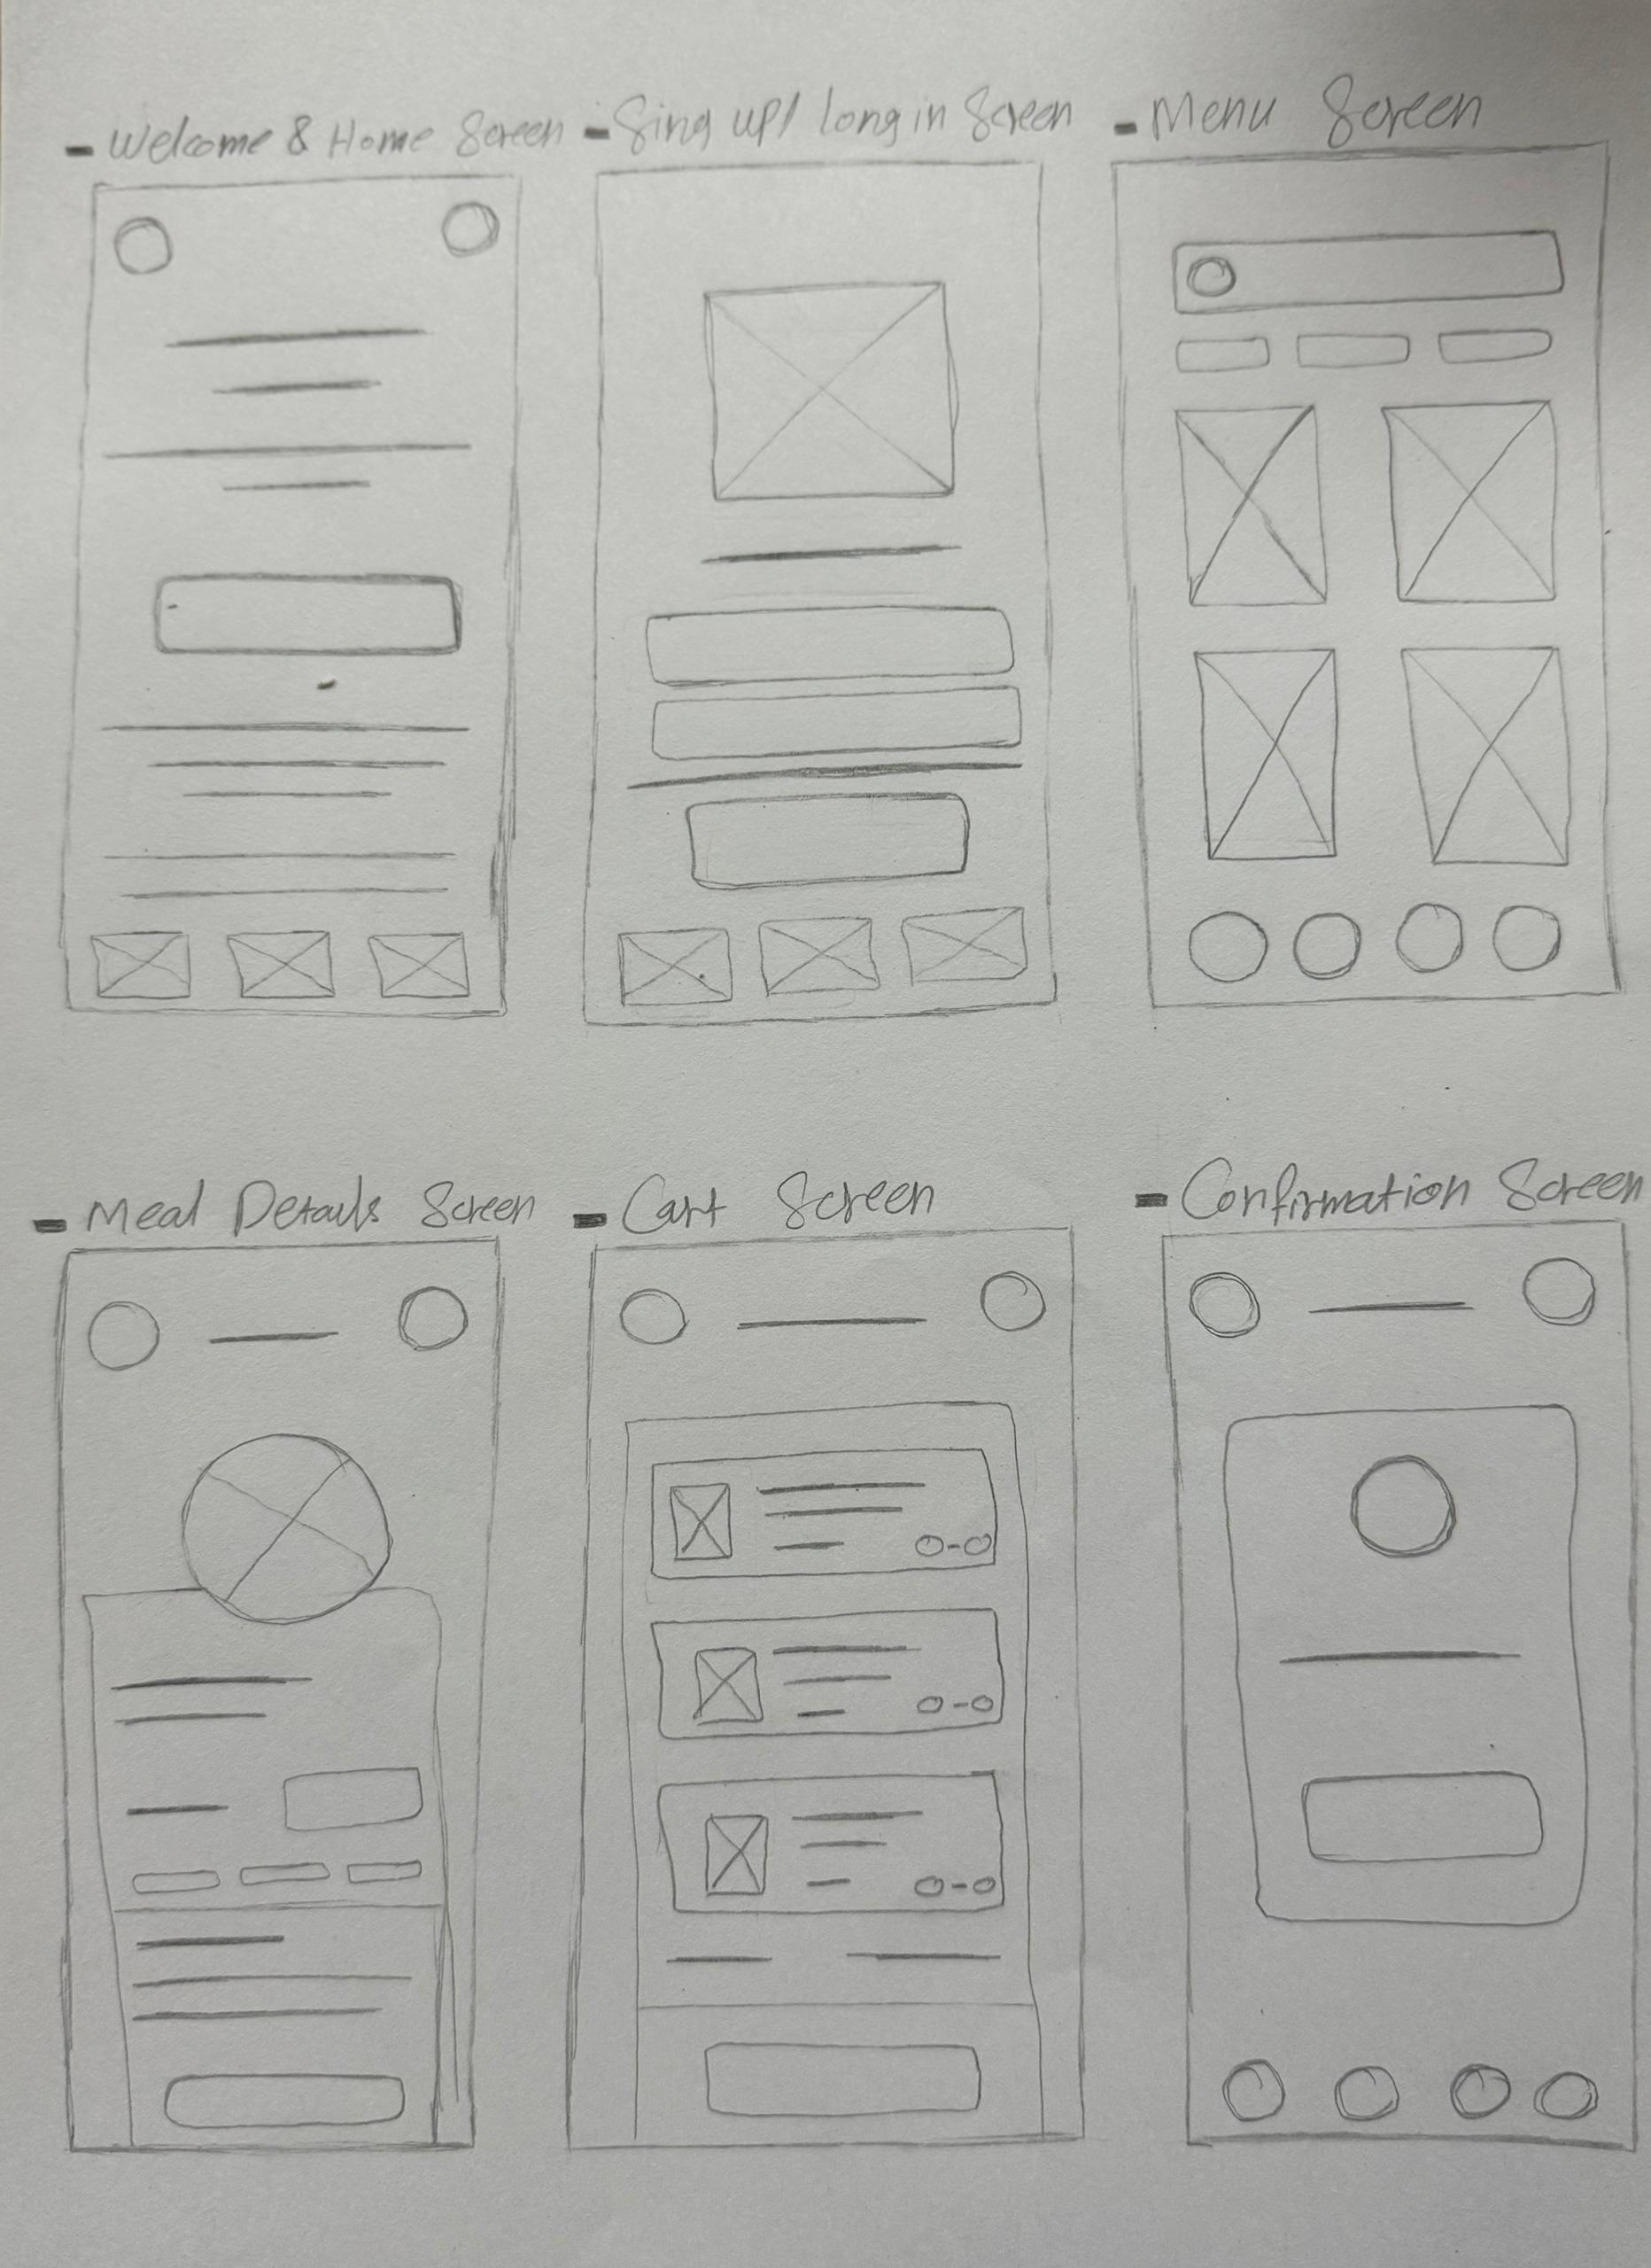 - Welcome & Home Screen
- Sing up/ longin Screen
- Menu Screen
- Meal Details Screen
- Cart Screen
- Confirmation Screen